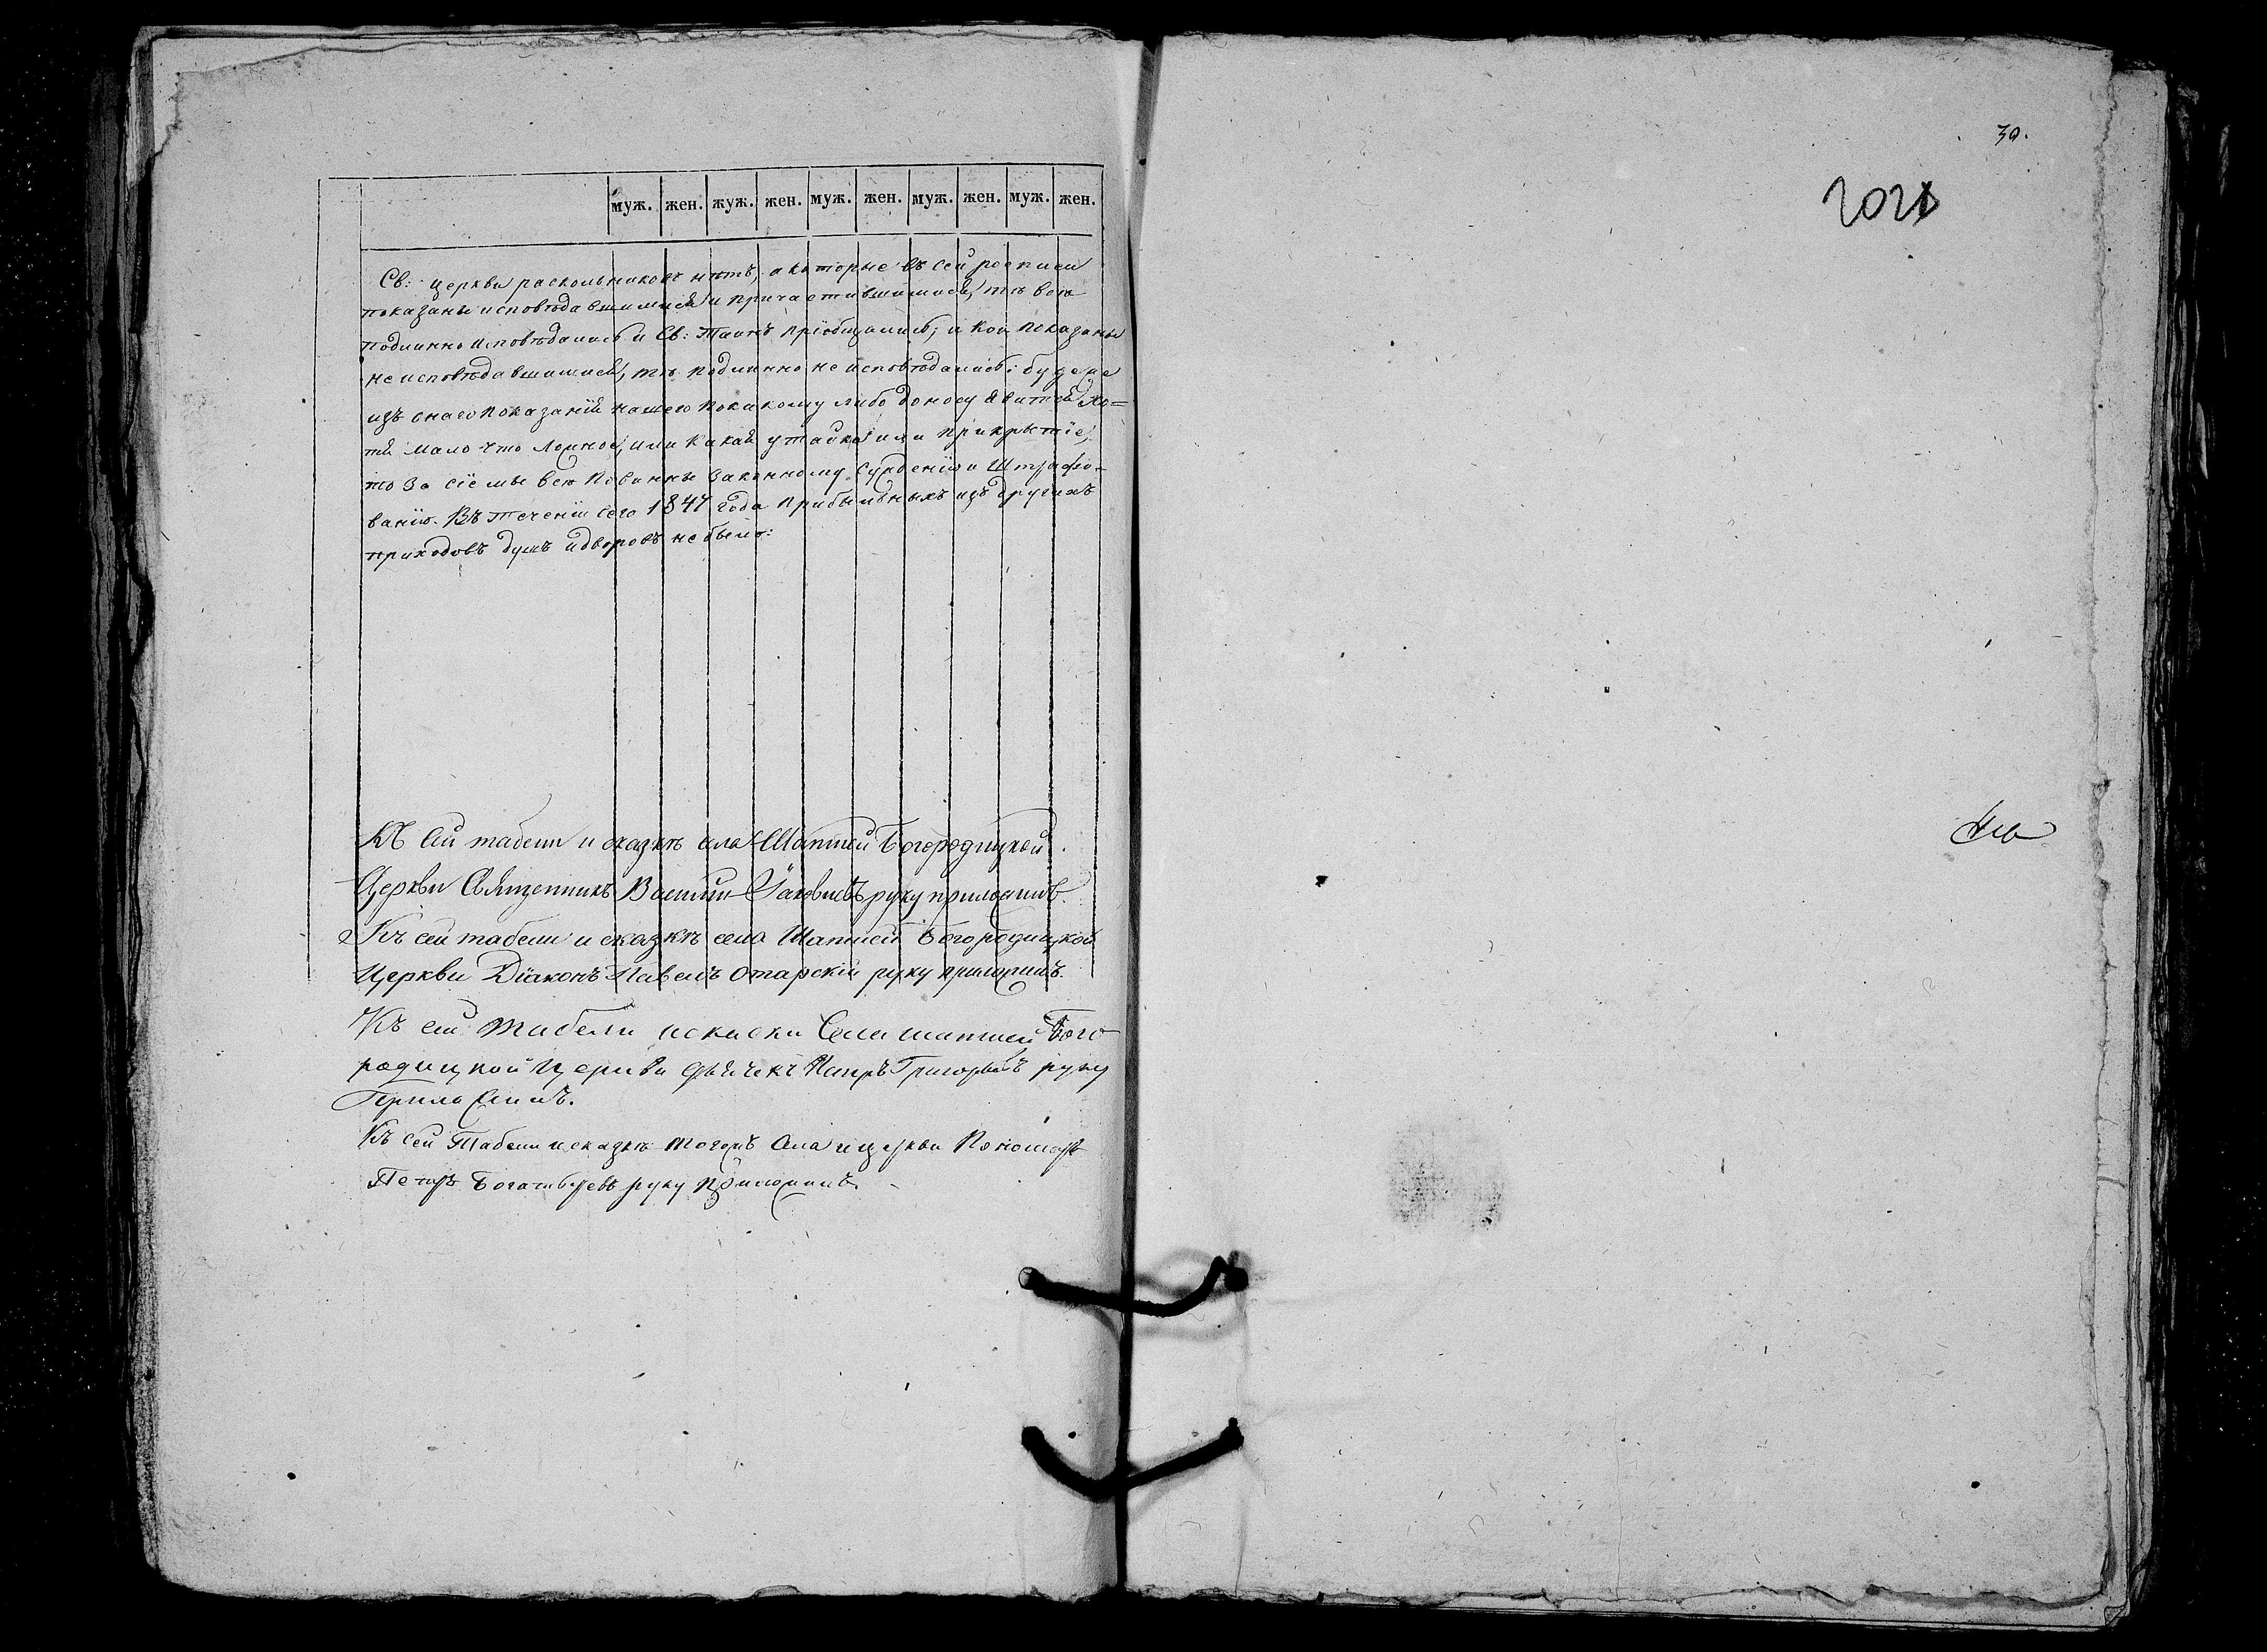 муж. жен. жуж. жен. муж. жен. муж. жен. муж. жен.
Св: церкви раскольниковъ нѣтъ; а которые въ сей росписи
показаны исповѣдавшимися и причастившимися, тѣ всѣ
подлинно исповѣдались и Св: Таинъ пріобщались; и кои показаны
не исповѣдавшимися, тѣ подлинно не исповѣдались; буде же
изъ онаго показанія нашего по какому либо доносу явится хо=
тя мало что ложное, или какая утайка или прикрытіе,
то за сіе мы всѣ повинны законному сужденію и штрафо-
ванію. Въ теченіи сего 1847 года прибылыхъ изъ другихъ
приходовъ душъ и дворовъ не было:
Къ сей табели и сказкѣ села Шапшей Богородицкой
Церкви Священникъ Василій Яковлевъ руку приложилъ.
Къ сей табели и сказкѣ села Шапшей Богородицкой
Церкви Діаконъ Павелъ Отарскій руку приложилъ.
Къ сей табели и скаски Села шапшей Бого
родицкой Церкви дьячекъ Григорьевъ руку
Приложилъ.
Къ сей Табели и сказкѣ тогожъ села и церкви Пономарь
Петръ Богатыревъ руку приложилъ.
30.